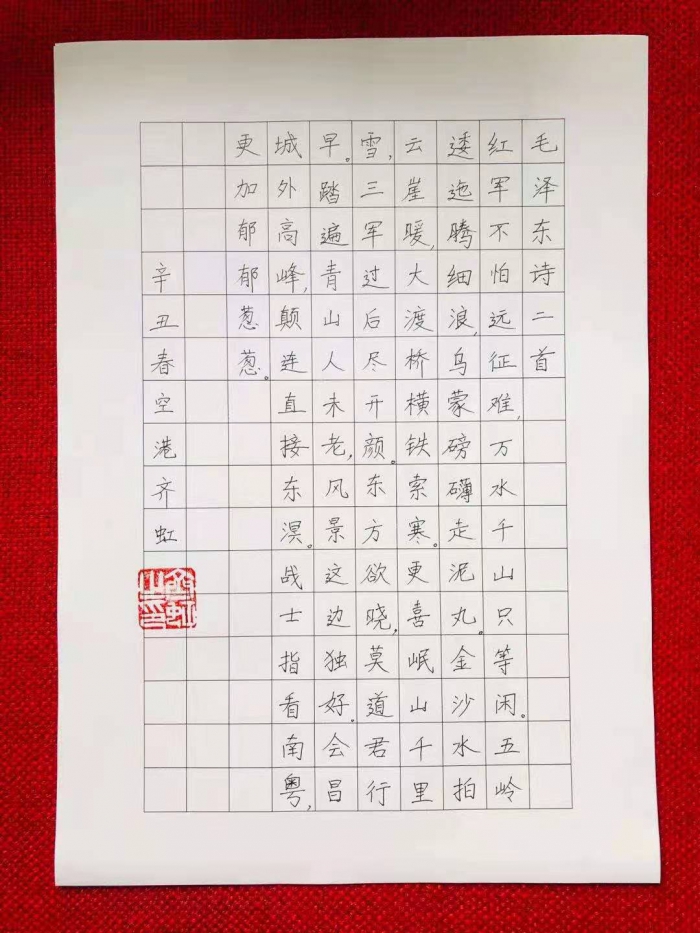 毛泽东诗二首
红军不怕远征难,万水千山只等闲。五岭
逶迤腾细浪,乌蒙磅礴走泥丸。金沙水拍
云崖暖,大渡桥横铁索寒。更喜岷山千里
雪,三军过后尽开颜。东方欲晓,莫道君行
早。踏遍青山人未老,风景这边独好。会昌
城外高峰,颠连直接东溟。战士指看南粤,
更加郁郁葱葱。
辛丑春空港齐虹
齐虹之印